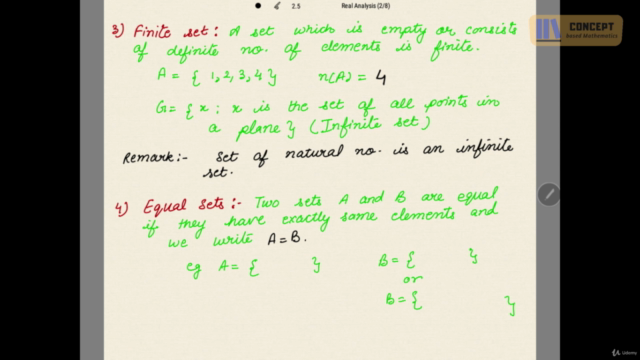 2.5
Real Analysis (2/8)
CONCEPT
Based Mathematics
3) Finite set: A set which is empty or consists
of definite no. of elements is finite.
A = { 1, 2, 3, 4 } n(A) = 4
G = { x : x is the set of all points in
a plane } (Infinite set)
Remark:- Set of natural no. is an infinite
set.
4) Equal Sets:- Two sets A and B are equal
if they have exactly same elements and
we write A = B.
eg A = { } B = { }
or
B = { }
Udemy